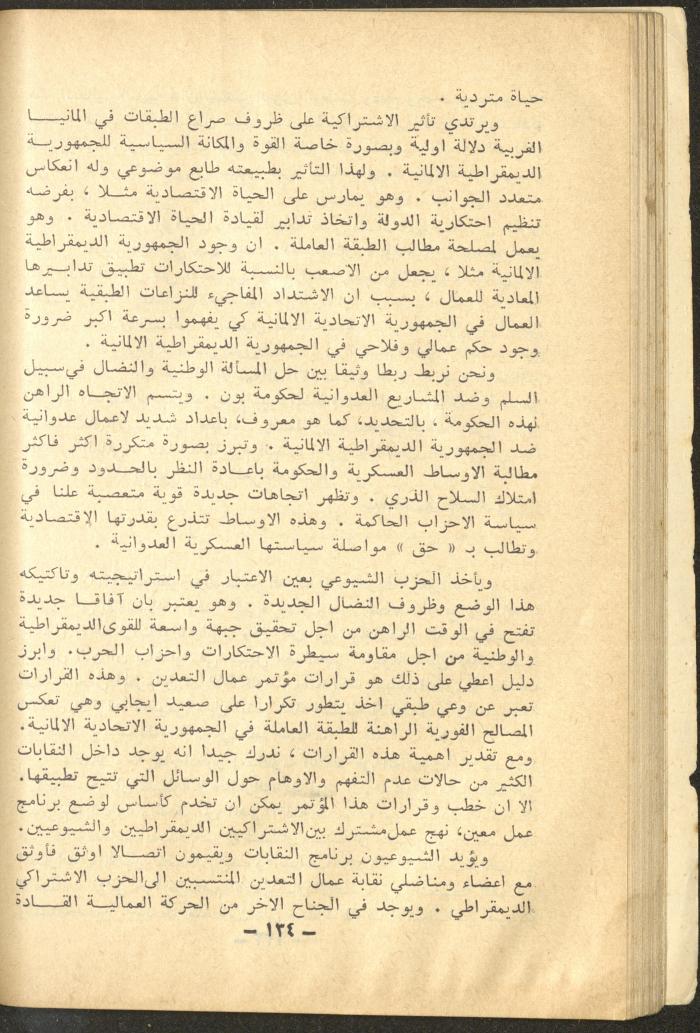 حياة متردية .
ويرتدي تأثير الاشتراكية على ظروف صراع الطبقات في المانيـــا
الغربية دلالة اولية وبصورة خاصة القوة والمكانة السياسية للجمهوريـــة
الديمقراطية الالمانية . ولهذا التأثير بطبيعته طابع موضوعي وله انعكاس
متعدد الجوانب . وهو يمارس على الحياة الاقتصادية مثــلا ، بفرضه
تنظيم احتكارية الدولة واتخاذ تدابير لقيادة الحياة الاقتصادية . وهو
يعمل لمصلحة مطالب الطبقة العاملة . ان وجود الجمهورية الديمقراطية
الالمانية مثلا ، يجعل من الاصعب بالنسبة للاحتكارات تطبيق تدابــيرها
المعادية للعمال ، بسبب ان الاشتداد المفاجيء للنزاعات الطبقية يساعد
العمال في الجمهورية الاتحادية الالمانية كي يفهموا بسرعة اكبر ضرورة
وجود حكم عمالي وفلاحي في الجمهورية الديمقراطية الالمانية .
ونحن نربط ربطا وثيقا بين حل المسألة الوطنية والنضال في سبيل
السلم وضد المشاريع العدوانية لحكومة بون . ويتسم الاتجــاه الراهن
لهذه الحكومة ، بالتحديد، كما هو معروف، باعداد شديد لاعمال عدوانية
ضد الجمهورية الديمقراطية الالمانية . وتبرز بصورة متكررة اكثر فاكثر
مطالبة الاوساط العسكرية والحكومة باعــادة النظر بالحــدود وضرورة
امتلاك السلاح الذري . وتظهر اتجاهات جديدة قوية متعصبة علنا في
سياسة الاحزاب الحاكمة . وهذه الاوساط تتذرع بقدرتها الاقتصادية
وتطالب بـ « حق » مواصلة سياستها العسكرية العدوانية .
ويأخذ الحزب الشيوعي بعين الاعتبار في استراتيجيته وتاكتيكه
هذا الوضع وظروف النضال الجديدة . وهو يعتبر بان آفاقــا جديدة
تفتح في الوقت الراهن من اجل تحقيق جبهة واسعة للقوى الديمقراطية
والوطنية من اجل مقاومة سيطرة الاحتكارات واحزاب الحرب. وابرز
دليل اعطي على ذلك هو قرارات مؤتمر عمال التعدين . وهذه القرارات
تعبر عن وعي طبقي اخذ يتطور تكرارا على صعيد ايجابي وهي تعكس
المصالح الفورية الراهنة للطبقة العاملة في الجمهورية الاتحادية الالمانية.
ومع تقدير اهمية هذه القرارات ، ندرك جيدا انه يوجد داخل النقابات
الكثير من حالات عدم التفهم والاوهام حول الوسائل التي تتيح تطبيقها.
الا ان خطب وقرارات هذا المؤتمر يمكن ان تخدم كأساس لوضع برنامج
عمل معين، نهج عمل مشترك بين الاشتراكيين الديمقراطيين والشيوعيين.
ويؤيد الشيوعيون برنامج النقابات ويقيمون اتصــالا اوثق فأوثق
مع اعضاء ومناضلي نقابة عمال التعدين المنتسبين الى الحزب الاشتراكي
الديمقراطي . ويوجد في الجناح الاخر من الحركة العمالية القــادة
– ١٣٤ –